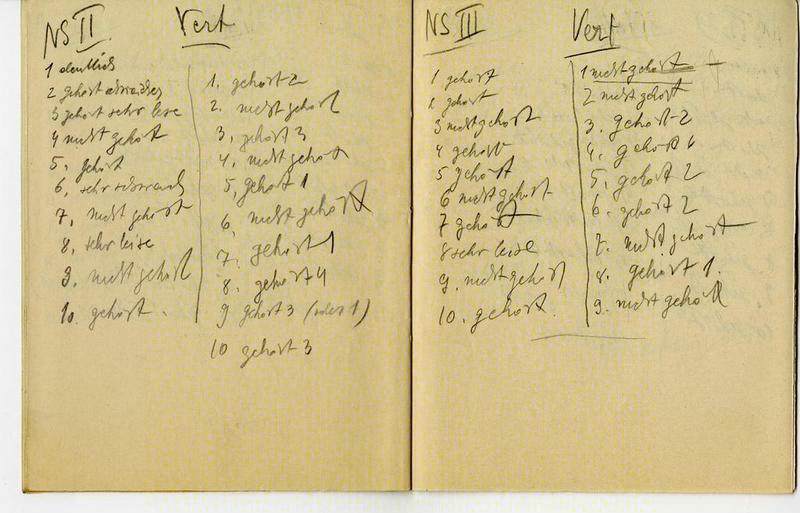 NS II
Vert
1 deutlich
2 gehört
3 gehört sehr leise
4 nicht gehört
5, gehört
6, sehr schwach
7, nicht gehört
8, sehr leise
9. nicht gehört
10. gehört.
1. gehört 2
2. nicht gehört
3, gehört 3
4, nicht gehört
5, gehört 1
6, nicht gehört
7. gehört 1
8. gehört 4
9 gehört 3 (oder 1)
10 gehört 3
NS III
Vert
1 gehört
2 gehört
3 nicht gehört
4 gehört
5 gehört
6 nicht gehört
7 gehört
8 sehr leise
9. nicht gehört
10. gehört.
1 nicht gehört
2 nicht gehört
3. gehört 2
4. gehört
5. gehört 2
6. gehört 2
7. nicht gehört
8. gehört 1.
9. nicht gehört